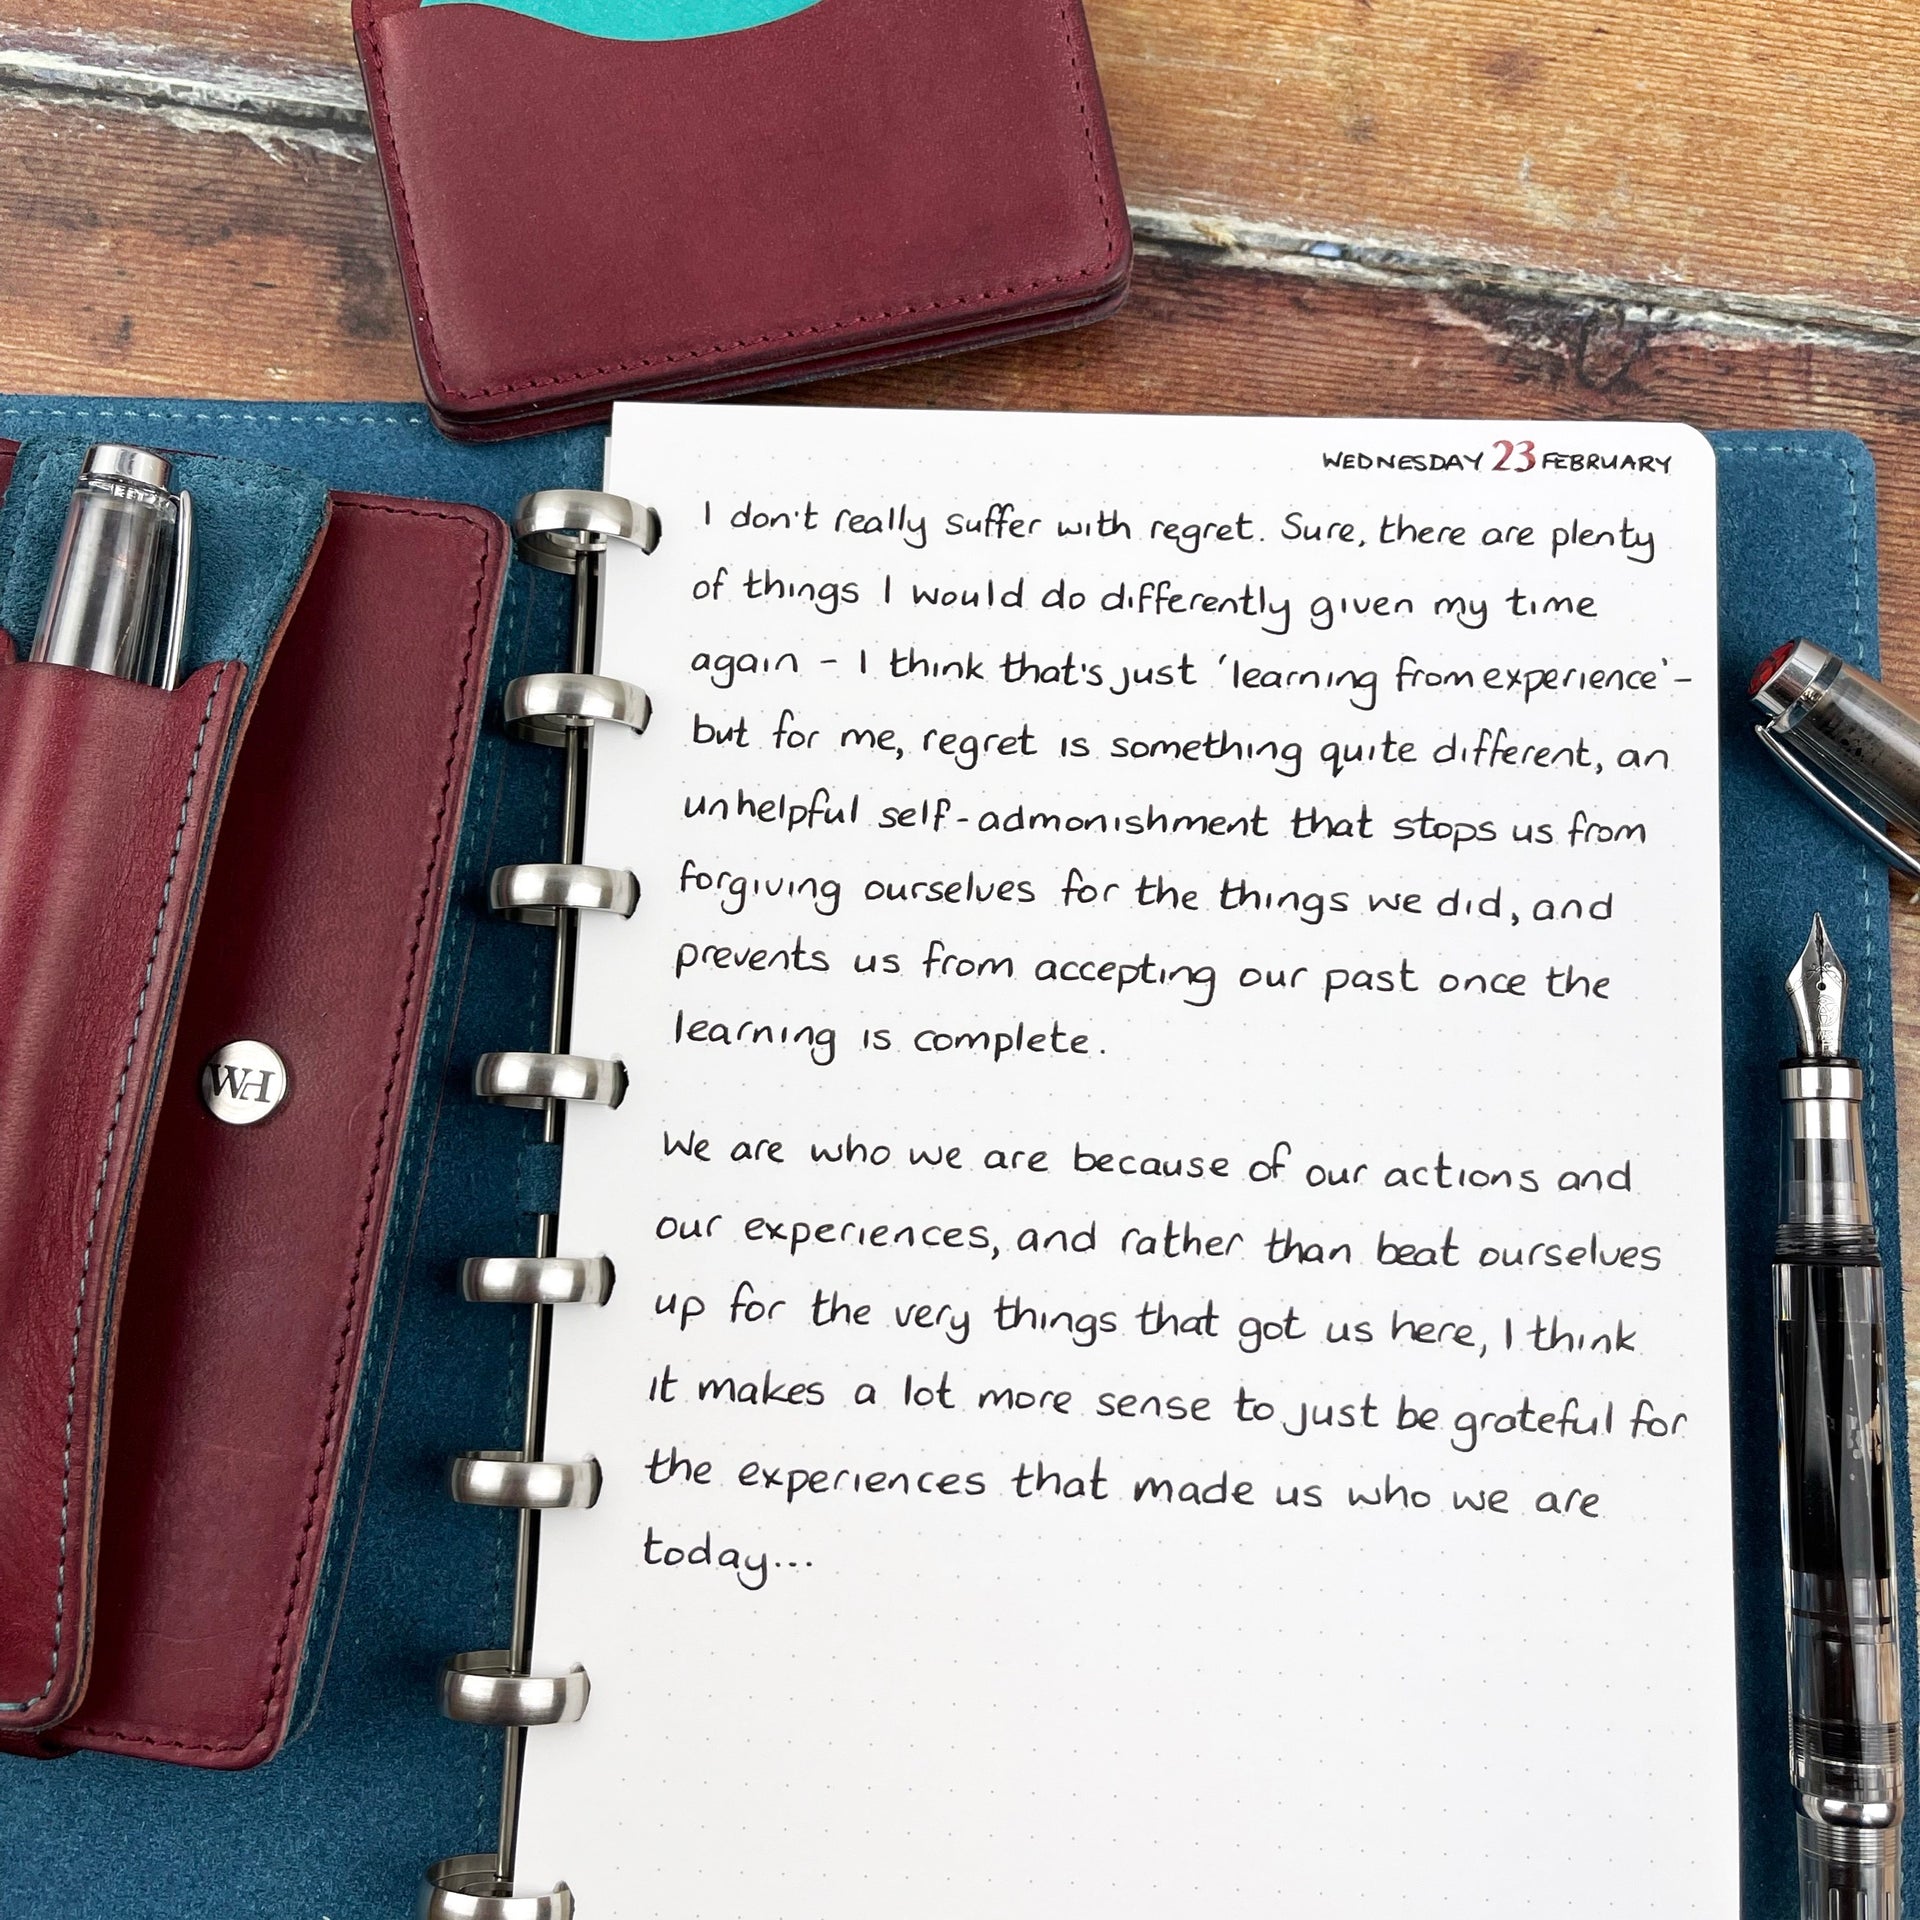 WEDNESDAY 23 FEBRUARY
I don't really suffer with regret. Sure, there are plenty
of things I would do differently given my time
again - I think that's just 'learning from experience' -
but for me, regret is something quite different, an
unhelpful self-admonishment that stops us from
forgiving ourselves for the things we did, and
prevents us from accepting our past once the
learning is complete.
We are who we are because of our actions and
our experiences, and rather than beat ourselves
up for the very things that got us here, I think
it makes a lot more sense to just be grateful for
the experiences that made us who we are
today...
WH